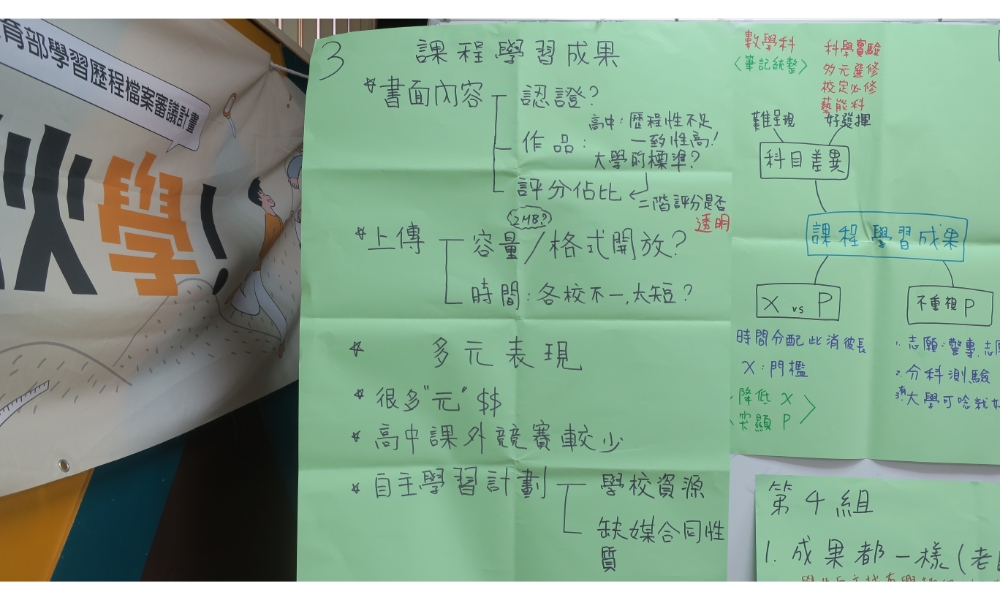 育部學習歷程檔案審議計畫
學!
3
課程學習成果
☆書面內容
認證?
作品:
高中:歷程性不足
一致性高!
大學的標準?
評分佔比
二階評分是否
透明
☆上傳
2MB?
容量/格式開放?
時間:各校不一,太短?
☆ 多元表現
☆ 很多"元" $$
☆ 高中課外競賽較少
☆ 自主學習計劃
學校資源
缺媒合同性
質
數學科
〈筆記統整〉
科學實驗
多元選修
校定必修
藝能科
難呈現
好發揮
科目差異
課程學習成果
X vs P
時間分配此消彼長
X:門檻
降低 X
突顯 P
不重複P
1.志願:
2.分科測驗
第4組
1. 成果都一樣(老